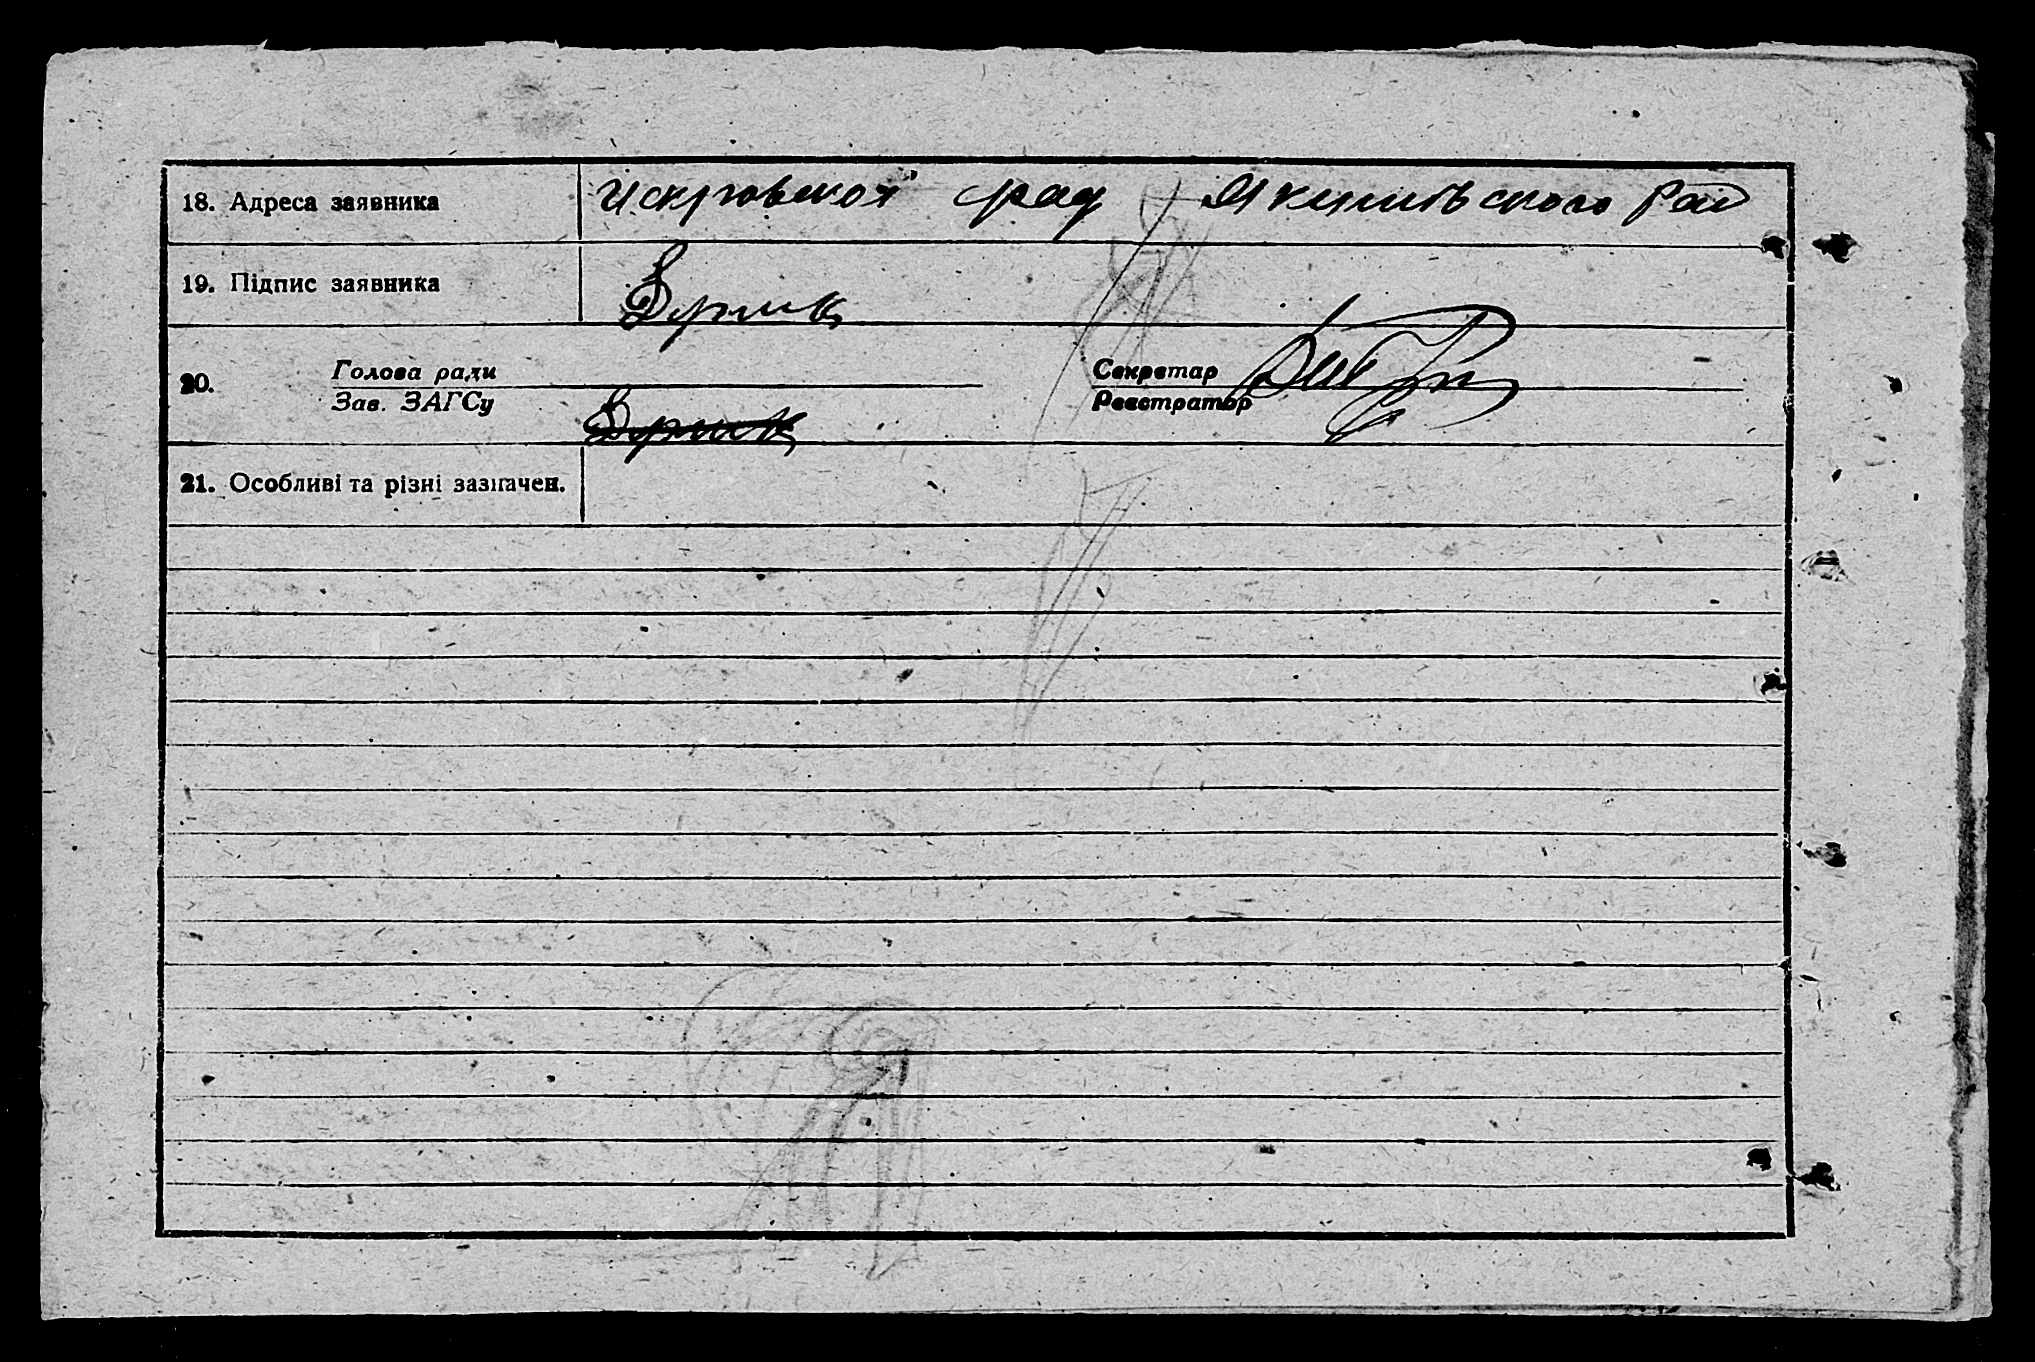 18. Адреса заявника Искровской рад Якимівского Рай
19. Підпис заявника Бурлик
20. Голова ради Секретар
Зав. ЗАГСу Реєстратор
21. Особливі та різні зазначен.